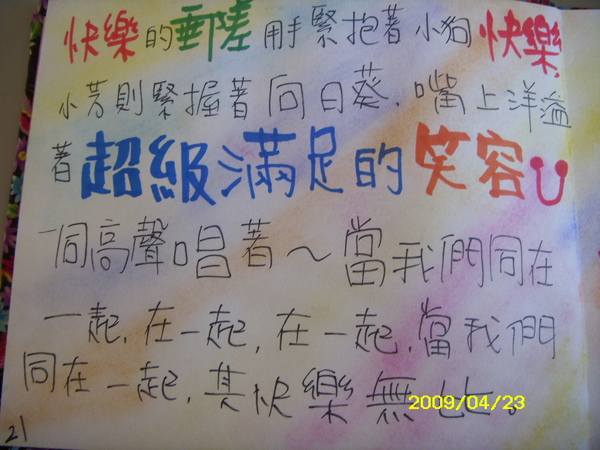 快樂的郵差用手緊抱著小狗快樂,
小芳則緊握著向日葵,嘴上洋溢
著超級滿足的笑容
一同高聲唱著~當我們同在
一起,在一起,在一起,當我們
同在一起,其快樂無比。
2009/04/23
21